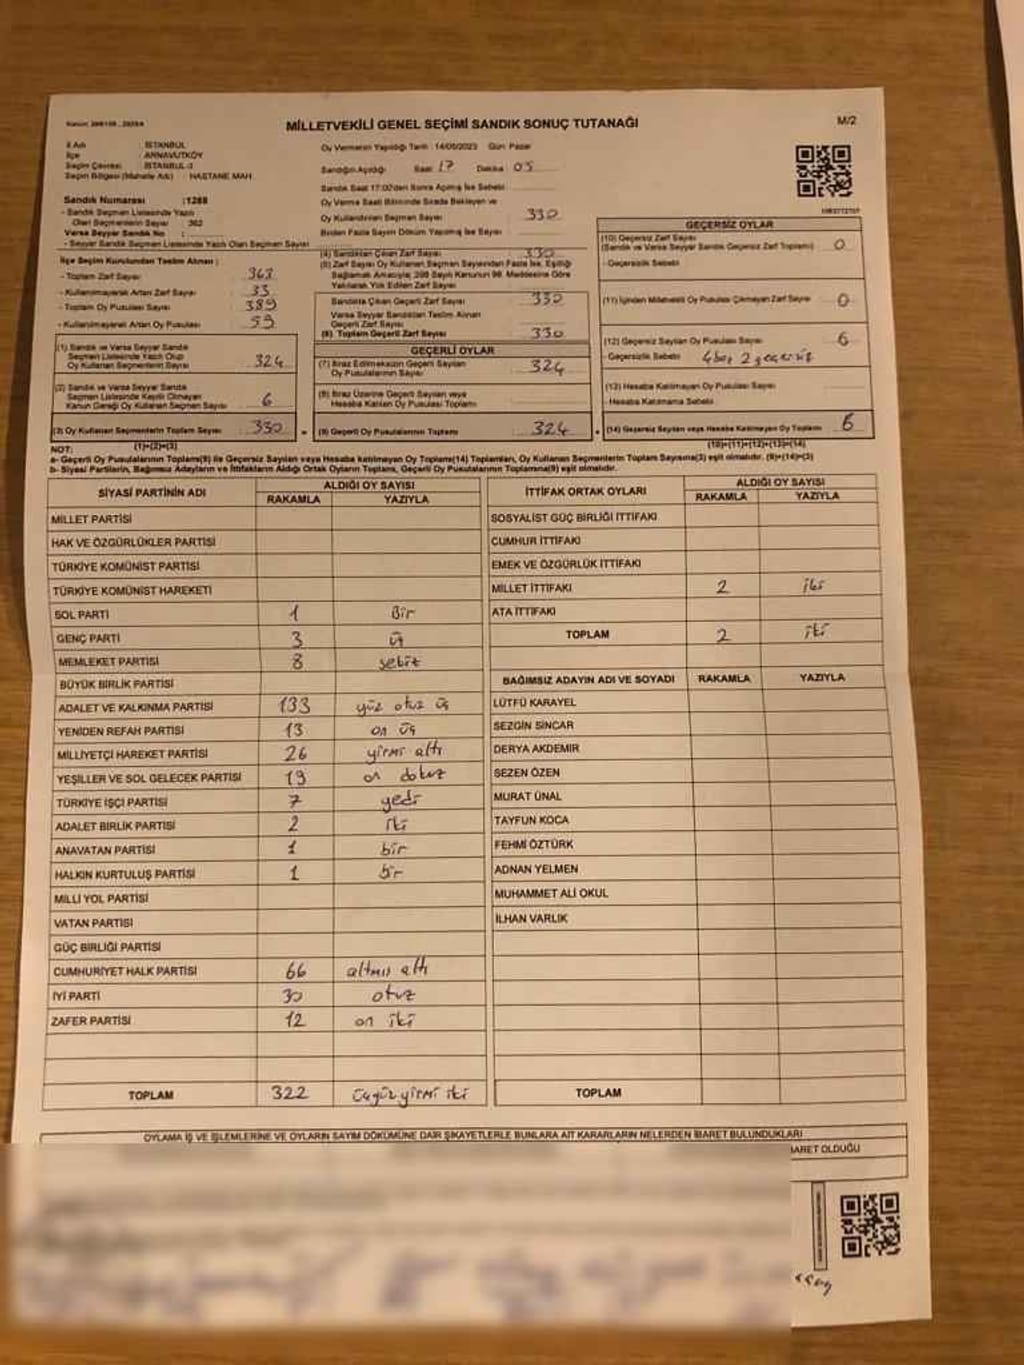 MİLLETVEKİLİ GENEL SEÇİMİ SANDIK SONUÇ TUTANAĞI
M/2
İl Adı : İSTANBUL
İlçe : ARNAVUTKÖY
Seçim Çevresi : İSTANBUL-3
Seçim Bölgesi (Mahalle Adı) : HASTANE MAH
Sandık Numarası :1288
- Sandık Seçmen Listesinde Yazılı
Olan Seçmenlerin Sayısı : 362
Varsa Seyyar Sandık No :
- Seyyar Sandık Seçmen Listesinde Yazılı Olan Seçmen Sayısı
İlçe Seçim Kurulundan Teslim Alınan :
- Toplam Zarf Sayısı 363
- Kullanılmayarak Artan Zarf Sayısı 33
- Toplam Oy Pusulası Sayısı 389
- Kullanılmayarak Artan Oy Pusulası 59
(1) Sandık ve Varsa Seyyar Sandık
Seçmen Listesinde Yazılı Olup
Oy Kullanan Seçmenlerin Sayısı 324
(2) Sandık ve Varsa Seyyar Sandık
Seçmen Listesinde Kayıtlı Olmayan
Kanun Gereği Oy Kullanan Seçmen Sayısı 6
(3) Oy Kullanan Seçmenlerin Toplam Sayısı 330
(1)+(2)=(3)
Oy Vermenin Yapıldığı Tarih : 14/05/2023 Gün: Pazar
Sandığın Açıldığı Saat 17 Dakika 05
Sandık Saat 17:00'den Sonra Açılmış İse Sebebi
Oy Verme Saati Bitiminde Sırada Bekleyen ve
Oy Kullandırılan Seçmen Sayısı 330
Birden Fazla Sayım Döküm Yapılmış İse Sayısı
(4) Sandıktan Çıkan Zarf Sayısı 330
(5) Zarf Sayısı Oy Kullanan Seçmen Sayısından Fazla İse, Eşitliği
Sağlamak Amacıyla; 298 Sayılı Kanunun 98. Maddesine Göre
Yakılarak Yok Edilen Zarf Sayısı
Sandıkta Çıkan Geçerli Zarf Sayısı 330
Varsa Seyyar Sandıktan Teslim Alınan
Geçerli Zarf Sayısı
(6) Toplam Geçerli Zarf Sayısı 330
GEÇERLİ OYLAR
(7) İtiraz Edilmeksizin Geçerli Sayılan
Oy Pusulalarının Sayısı 324
(8) İtiraz Üzerine Geçerli Sayılan veya
Hesaba Katılan Oy Pusulası Toplamı
(9) Geçerli Oy Pusulalarının Toplamı 324
GEÇERSİZ OYLAR
(10) Geçersiz Zarf Sayısı
(Sandık ve Varsa Seyyar Sandık Geçersiz Zarf Toplamı) 0
- Geçersizlik Sebebi
(11) İçinden Milletvekili Oy Pusulası Çıkmayan Zarf Sayısı 0
(12) Geçersiz Sayılan Oy Pusulası Sayısı 6
- Geçersizlik Sebebi 4 boş 2 geçersiz
(13) Hesaba Katılmayan Oy Pusulası Sayısı
- Hesaba Katılmama Sebebi
(14) Geçersiz Sayılan veya Hesaba Katılmayan Oy Toplamı 6
(10)+(11)+(12)+(13)=(14)
NOT:
a- Geçerli Oy Pusulalarının Toplamı(9) ile Geçersiz Sayılan veya Hesaba katılmayan Oy Toplamı(14) Toplamları, Oy Kullanan Seçmenlerin Toplam Sayısına(3) eşit olmalıdır. (9)+(14)=(3)
b- Siyasi Partilerin, Bağımsız Adayların ve İttifakların Aldığı Ortak Oyların Toplamı, Geçerli Oy Pusulalarının Toplamına(9) eşit olmalıdır.
SİYASİ PARTİNİN ADI ALDIĞI OY SAYISI
RAKAMLA YAZIYLA
MİLLET PARTİSİ
HAK VE ÖZGÜRLÜKLER PARTİSİ
TÜRKİYE KOMÜNİST PARTİSİ
TÜRKİYE KOMÜNİST HAREKETİ
SOL PARTİ 1 Bir
GENÇ PARTİ 3 üç
MEMLEKET PARTİSİ 8 sekiz
BÜYÜK BİRLİK PARTİSİ
ADALET VE KALKINMA PARTİSİ 133 yüz otuz üç
YENİDEN REFAH PARTİSİ 13 on üç
MİLLİYETÇİ HAREKET PARTİSİ 26 yirmi altı
YEŞİLLER VE SOL GELECEK PARTİSİ 19 on dokuz
TÜRKİYE İŞÇİ PARTİSİ 7 yedi
ADALET BİRLİK PARTİSİ 2 iki
ANAVATAN PARTİSİ 1 bir
HALKIN KURTULUŞ PARTİSİ 1 bir
MİLLİ YOL PARTİSİ
VATAN PARTİSİ
GÜÇ BİRLİĞİ PARTİSİ
CUMHURİYET HALK PARTİSİ 66 altmış altı
İYİ PARTİ 30 otuz
ZAFER PARTİSİ 12 on iki
TOPLAM 322 üçyüz yirmi iki
İTTİFAK ORTAK OYLARI ALDIĞI OY SAYISI
RAKAMLA YAZIYLA
SOSYALİST GÜÇ BİRLİĞİ İTTİFAKI
CUMHUR İTTİFAKI
EMEK VE ÖZGÜRLÜK İTTİFAKI
MİLLET İTTİFAKI 2 iki
ATA İTTİFAKI
TOPLAM 2 iki
BAĞIMSIZ ADAYIN ADI VE SOYADI RAKAMLA YAZIYLA
LÜTFÜ KARAYEL
SEZGİN SİNCAR
DERYA AKDEMİR
SEZEN ÖZEN
MURAT ÜNAL
TAYFUN KOCA
FEHMİ ÖZTÜRK
ADNAN YELMEN
MUHAMMET ALİ OKUL
İLHAN VARLIK
TOPLAM
OYLAMA İŞ VE İŞLEMLERİNE VE OYLARIN SAYIM DÖKÜMÜNE DAİR ŞİKAYETLERLE BUNLARA AİT KARARLARIN NELERDEN İBARET BULUNDUKLARI
BARET OLDUĞU